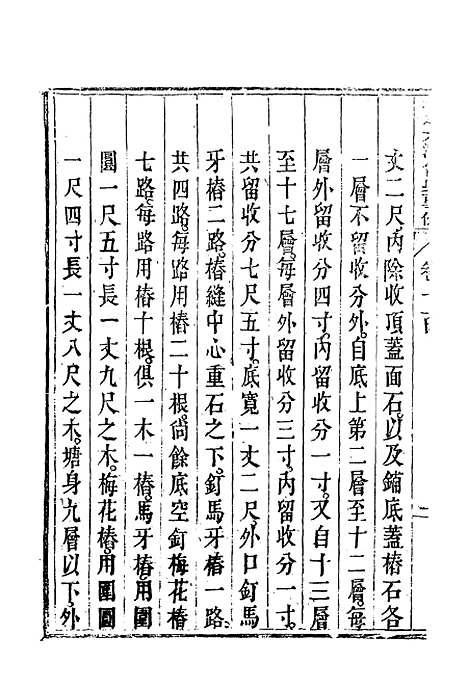 丈二尺內除收頂蓋面石以及鋪底蓋樁石各
一層不留收分外自底上第二層至十二層每
層外留收分四寸內留收分一寸又自十三層
至十七層每層外留收分三寸內留收分一寸
共留收分七尺五寸底寬一丈二尺外口釘馬
牙樁二路樁縫中心重石之下釘馬牙樁一路
共四路每路用樁二十根尚餘底空釘梅花樁
七路每路用樁十根俱一木一樁馬牙樁用圍
圓一尺五寸長一丈九尺之木梅花樁用圍圓
一尺四寸長一丈八尺之木塘身九層以下外